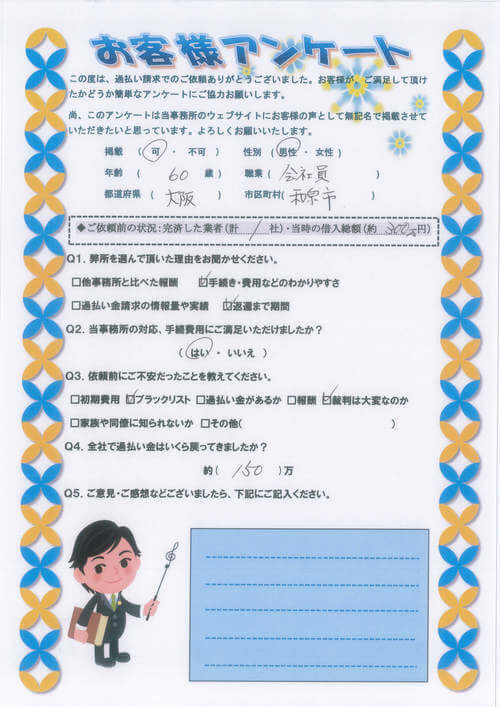 お客様アンケート
この度は、過払い請求でのご依頼ありがとうございました。お客様が、ご満足して頂け
たかどうか簡単なアンケートにご協力お願いします。
尚、このアンケートは当事務所のウェブサイトにお客様の声として無記名で掲載させて
いただきたいと思っています。よろしくお願いいたします。
掲載 ( 可 ・ 不可 ) 性別 ( 男性 ・ 女性 )
年齢 ( 60 歳 ) 職業 ( 会社員 )
都道府県 ( 大阪 ) 市区町村( 和泉市 )
◆ご依頼前の状況:完済した業者(計 1 社)・当時の借入総額(約 300万円)
Q1. 弊所を選んで頂いた理由をお聞かせください。
□他事務所と比べた報酬 ☑手続き・費用などのわかりやすさ
□過払い金請求の情報量や実績 ☑返還まで期間
Q2. 当事務所の対応、手続費用にご満足いただけましたか?
( はい ・ いいえ )
Q3. 依頼前にご不安だったことを教えてください。
□初期費用 ☑ブラックリスト □過払い金があるか □報酬 ☑裁判は大変なのか
□家族や同僚に知られないか □その他( )
Q4. 全社で過払い金はいくら戻ってきましたか?
約( 150 )万
Q5. ご意見・ご感想などございましたら、下記にご記入ください。